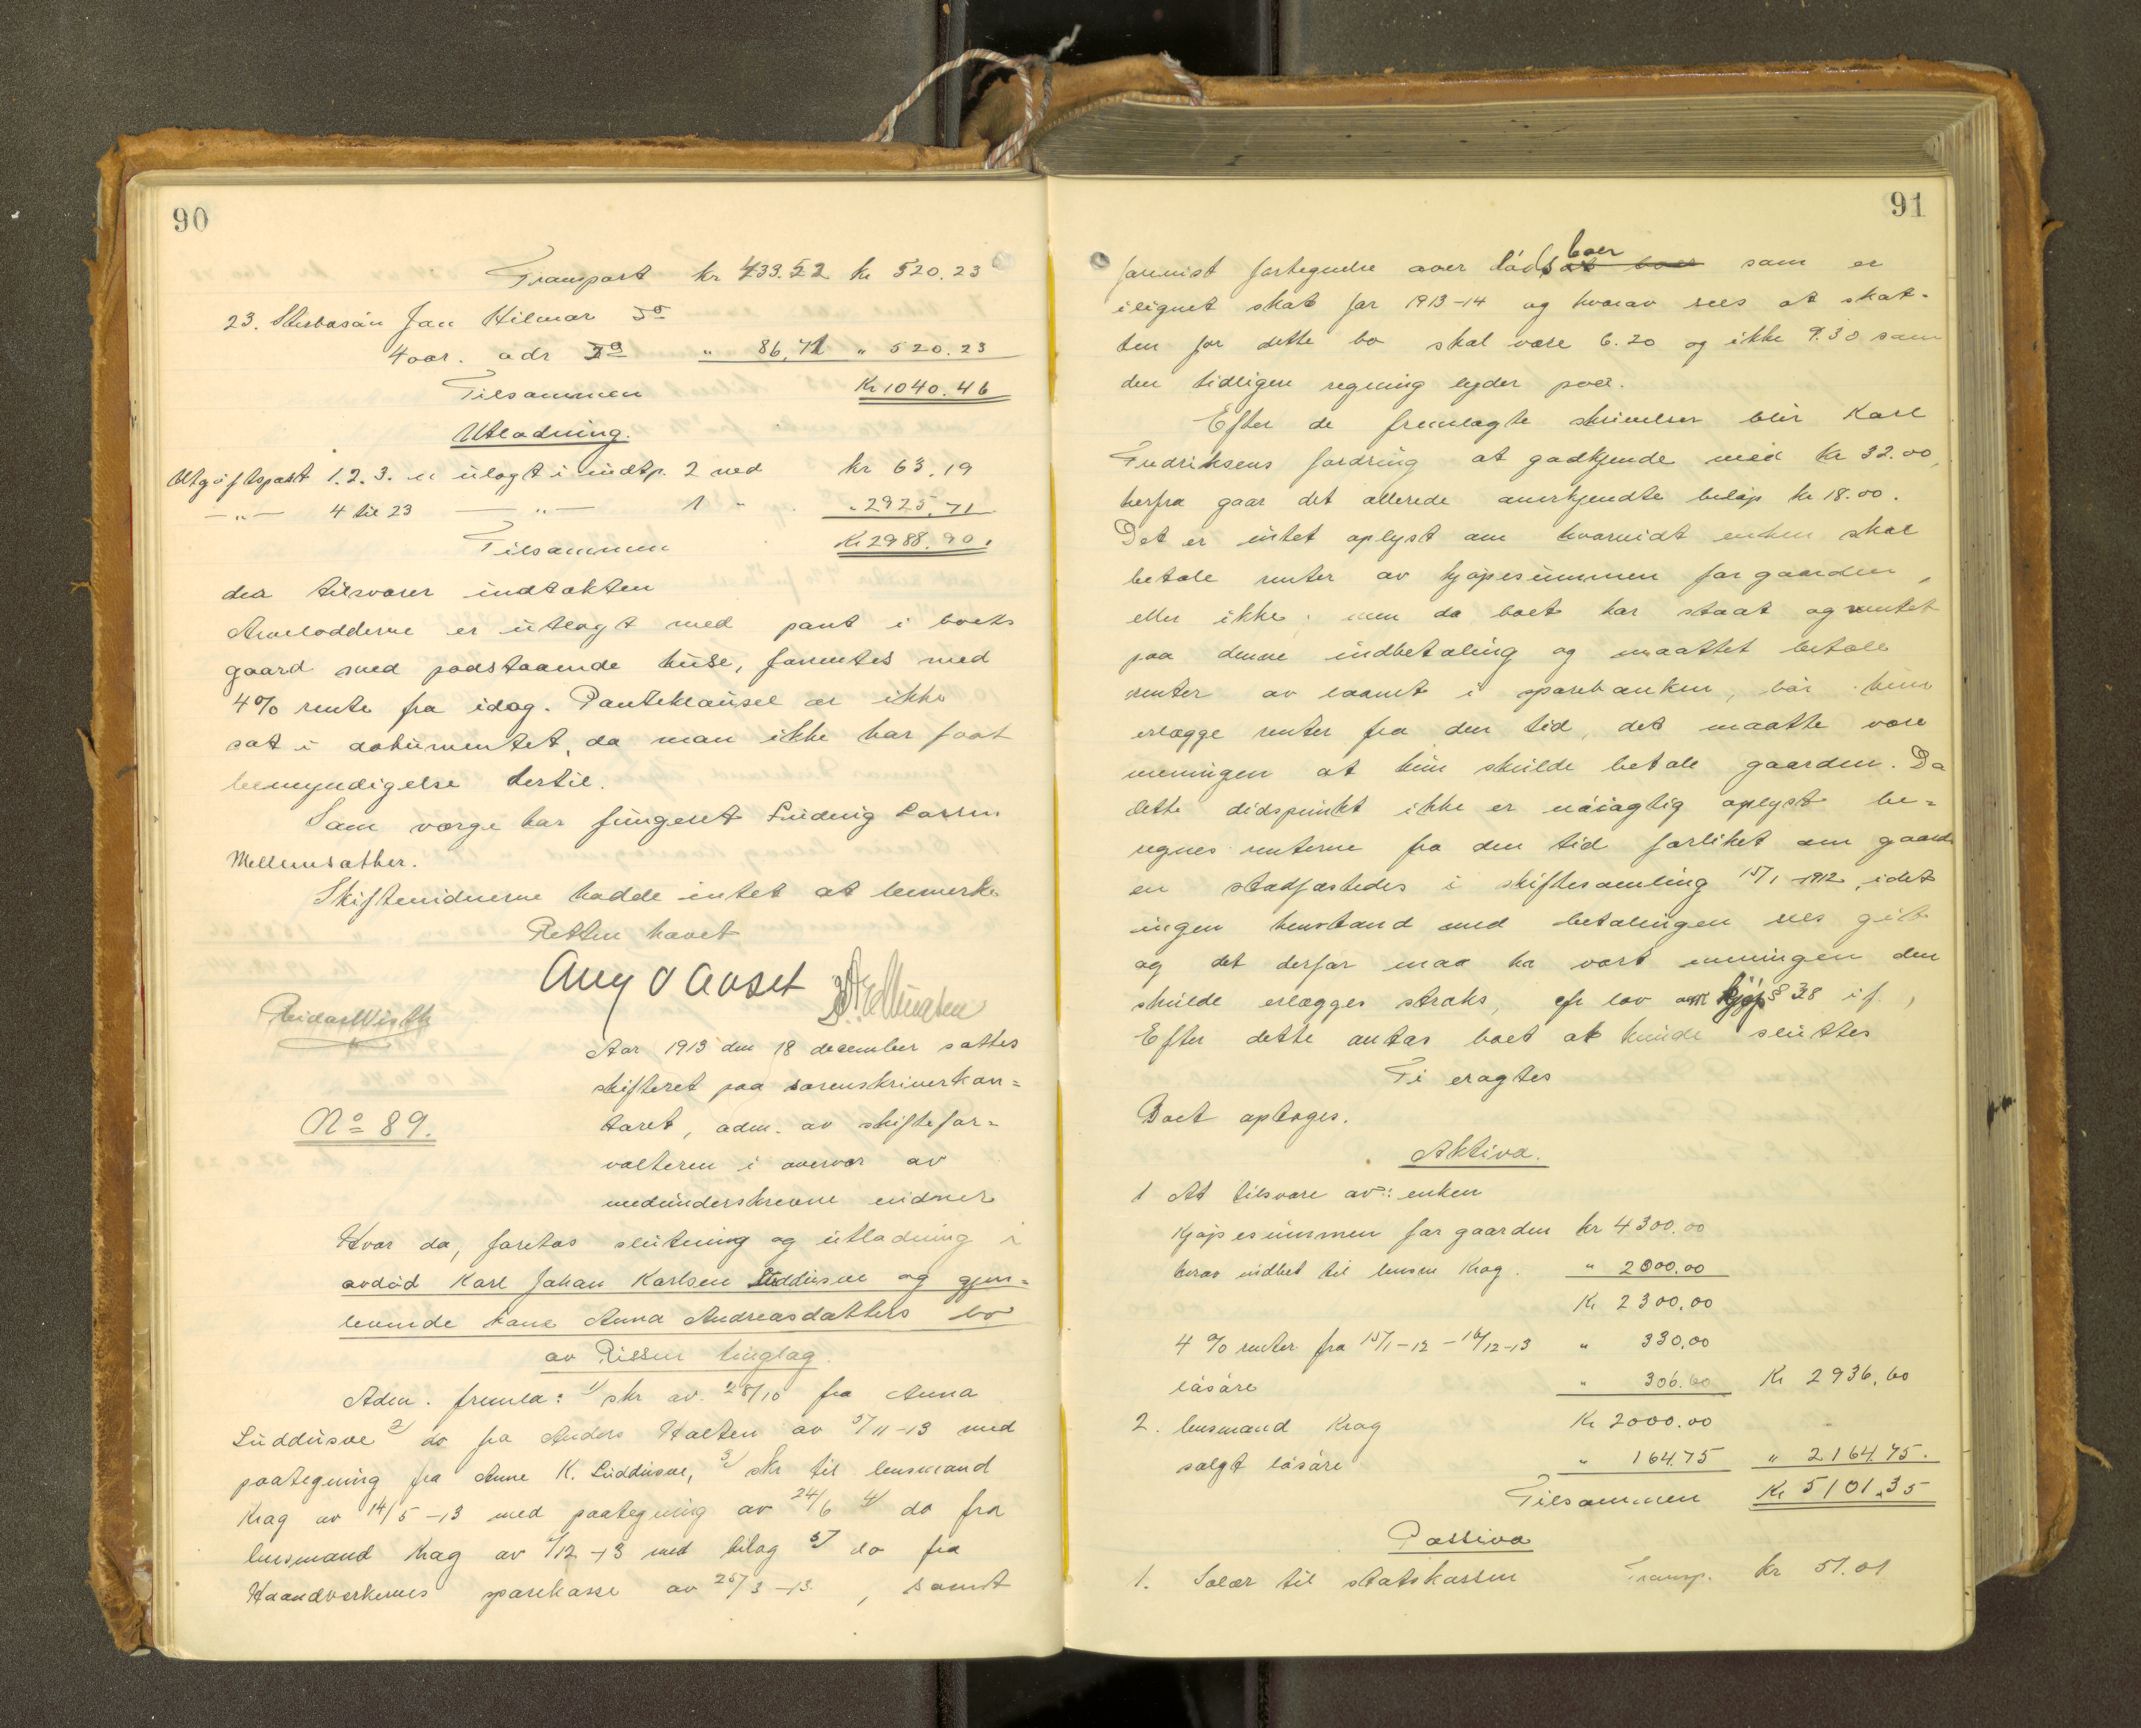 90
Transport kr 433.52 kr 520.23
23. Stesbasøn Jan Hilmar do
4 aar. adr do " 86,71 " 520.23
Tilsammen Kr 1040.46
Utlodning.
Utgiftspost 1.2.3. er utlagt i indtp. 2 med kr 63.19
—"— 4 til 23 —"— 1 " " 2925.71
Tilsammen Kr 2988.90.
der tilsvarer indtækten
Arvelodderne er utlagt med pant i boets
gaard med paastaaende huse, forrentes med
4% rente fra idag. Panteklausul er ikke
sat i dokumentet, da man ikke har faat
bemyndigelse hertil.
Som værge har fungeret Ludvig Larsen
Mellemsæther.
Skiftevidnerne hadde intet at bemerke
Retten hævet
Aug O Aoset
Reidar Wisth
Aar 1913 den 18 december sattes
skifteret paa sorenskriverkon=
toret, adm. av skiftefor=
valteren i overvær av
medunderskrevne vidner
No 89.
Hvor da, foretas slutning og utlodning i
avdød Karl Johan Karlsen Sluddusve og gjen=
levende kone Anna Andreasdatters bo
av Rissen tinglag.
Adm. fremla: 1/ skr av 28/10 fra Anna
Luddusve 2/ do fra Anders Halten av 5/11-13 med
paategning fra Anne K. Luddusve, 3/ skr til lensmand
Krag av 14/5-13 med paategning av 24/6 4/ do fra
lensmand Krag av /12-13 med bilag 5/ do fra
Haandverkernes sparekasse av 25/3-13, samt
91
forevist fortegnelse over dødsat boer boer som er
ilignet skat for 1913-14 og hvorav sees at skat-
ten for dette bo skal være 6.20 og ikke 9.30 som
den tidligere regning lyder paa.
Efter de fremlagte skrivelser blir Karl
Fredriksens fordring at godkjende med kr 32.00,
herfra gaar det allerede anerkjendte beløp kr 18.00.
Det er intet oplyst om hvorvidt enken skal
betale renter av kjøpesummen for gaarden,
eller ikke; men da boet har staat og ventet
paa denne indbetaling og maattet betale
renter av laanet i sparebanken, bør hun
erlægge renter fra den tid, det maatte være
meningen at hun skulde betale gaarden. Da
dette tidspunkt ikke er nøiagtig oplyst be=
regnes renterne fra den tid forliket om gaard
en stadfæstedes i skiftesamling 15/1-1912, idet
ingen henstand med betalingen sees git
og det derfor maa ha vært meningen den
skulde erlægges straks, cfr lov om kjøp § 38 i f.,
Efter dette antas boet at kunde sluttes
Ti eragtes
Boet optages.
Aktiva.
1 At tilsvare av: enken
Kjøpesummen for gaarden kr 4300.00
herav indbet til lensm Krag. " 2000.00
Kr 2300.00
4 % renter fra 15/1-12 - 16/12-13 " 330.00
løsøre " 306.60 Kr 2936.60
2. lensmand Krag Kr 2000.00
solgt løsøre " 164.75 " 2164.75.
Tilsammen Kr 5101.35
Passiva
1. Salær til statskassen Transp. kr 51.01